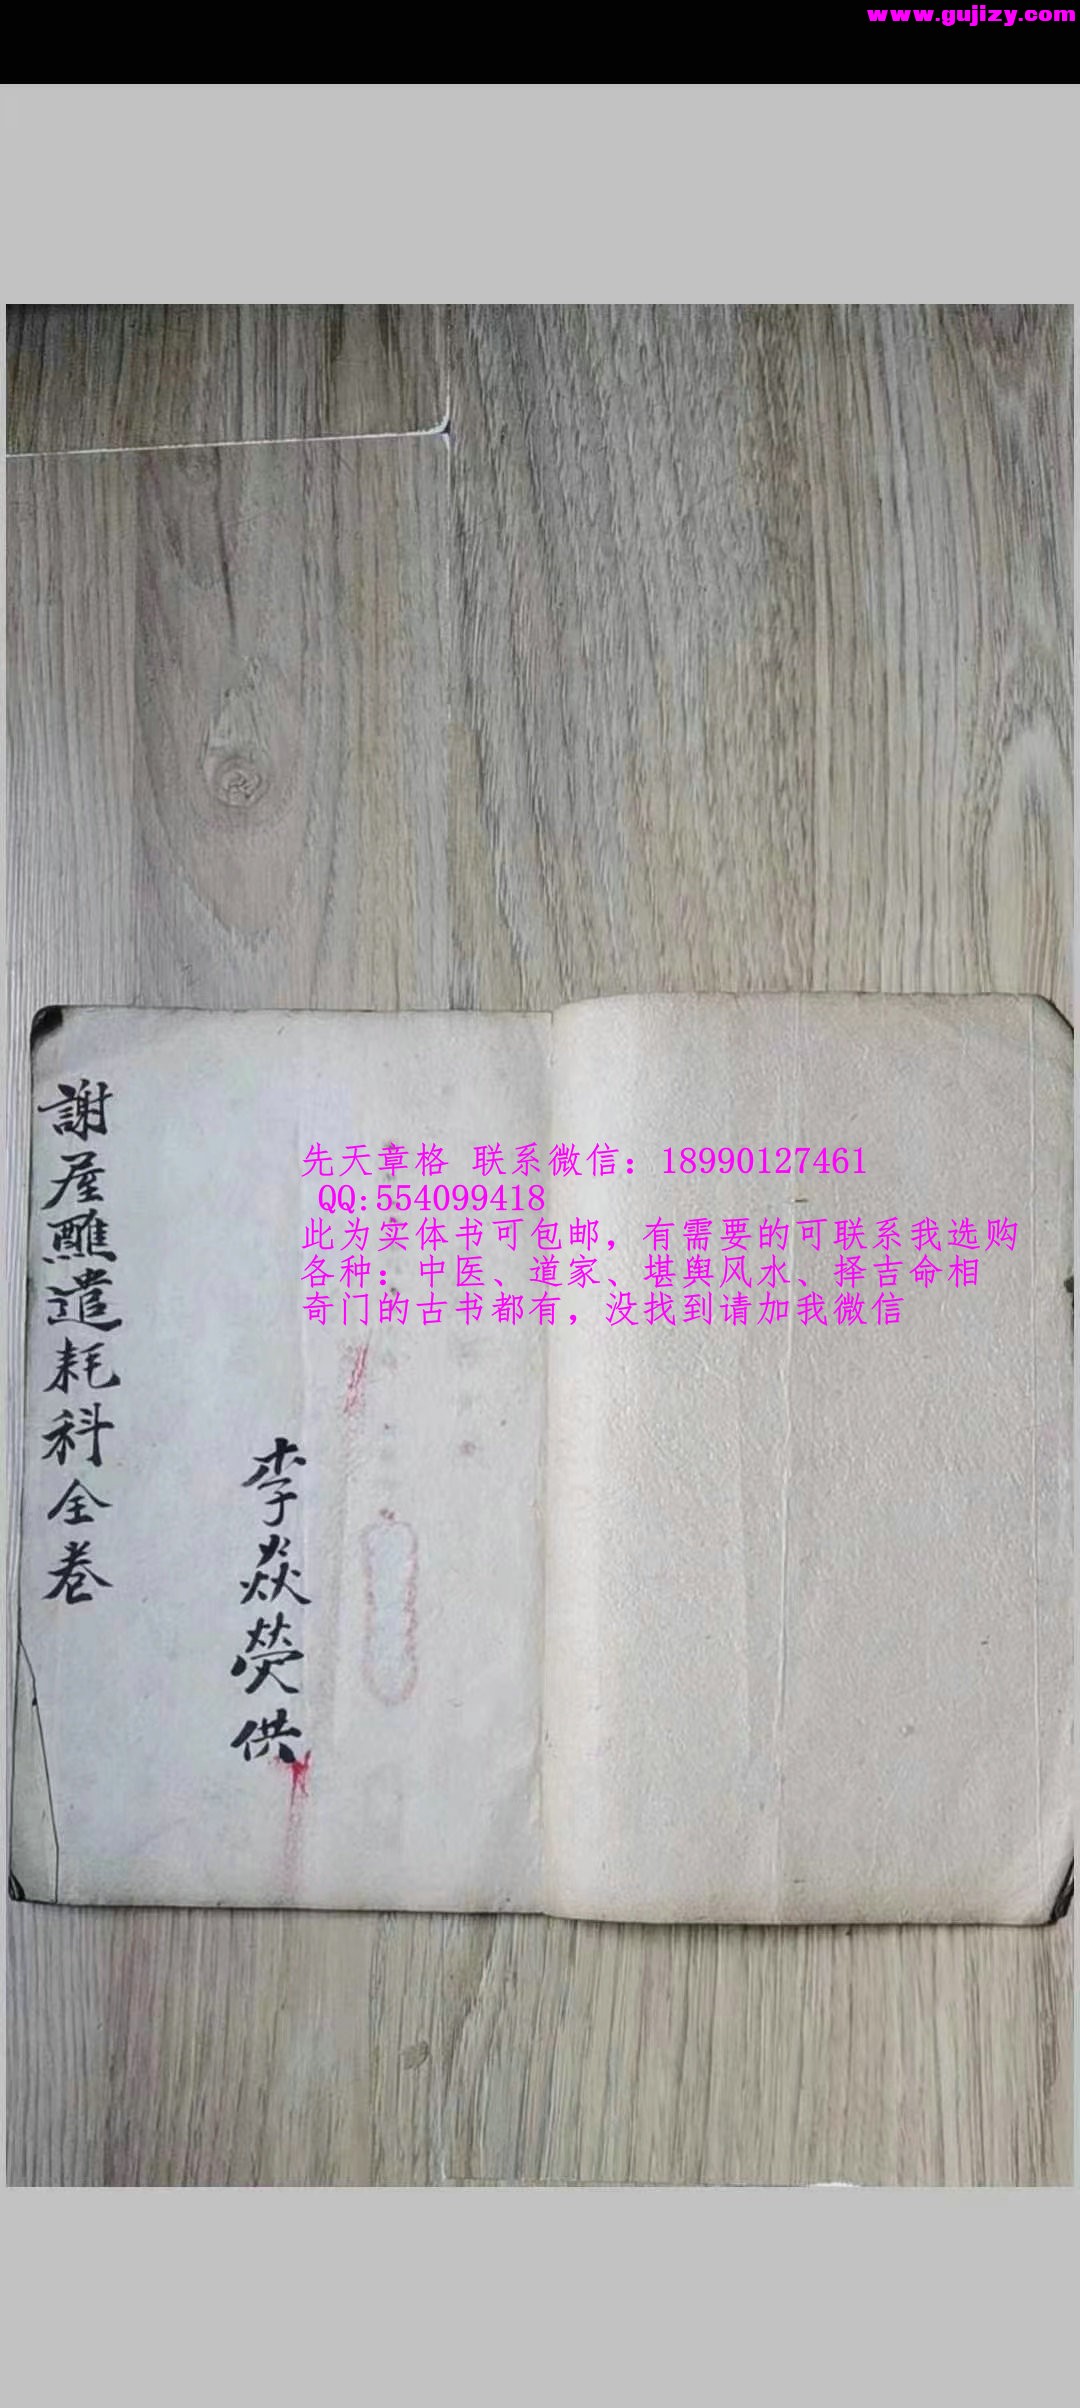 www.gujizy.com
謝屋醮遣耗科全卷
李焱熒供
先天章格 联系微信：18990127461
QQ:554099418
此为实体书可包邮，有需要的可联系我选购
各种：中医、道家、堪舆风水、择吉命相
奇门的古书都有，没找到请加我微信